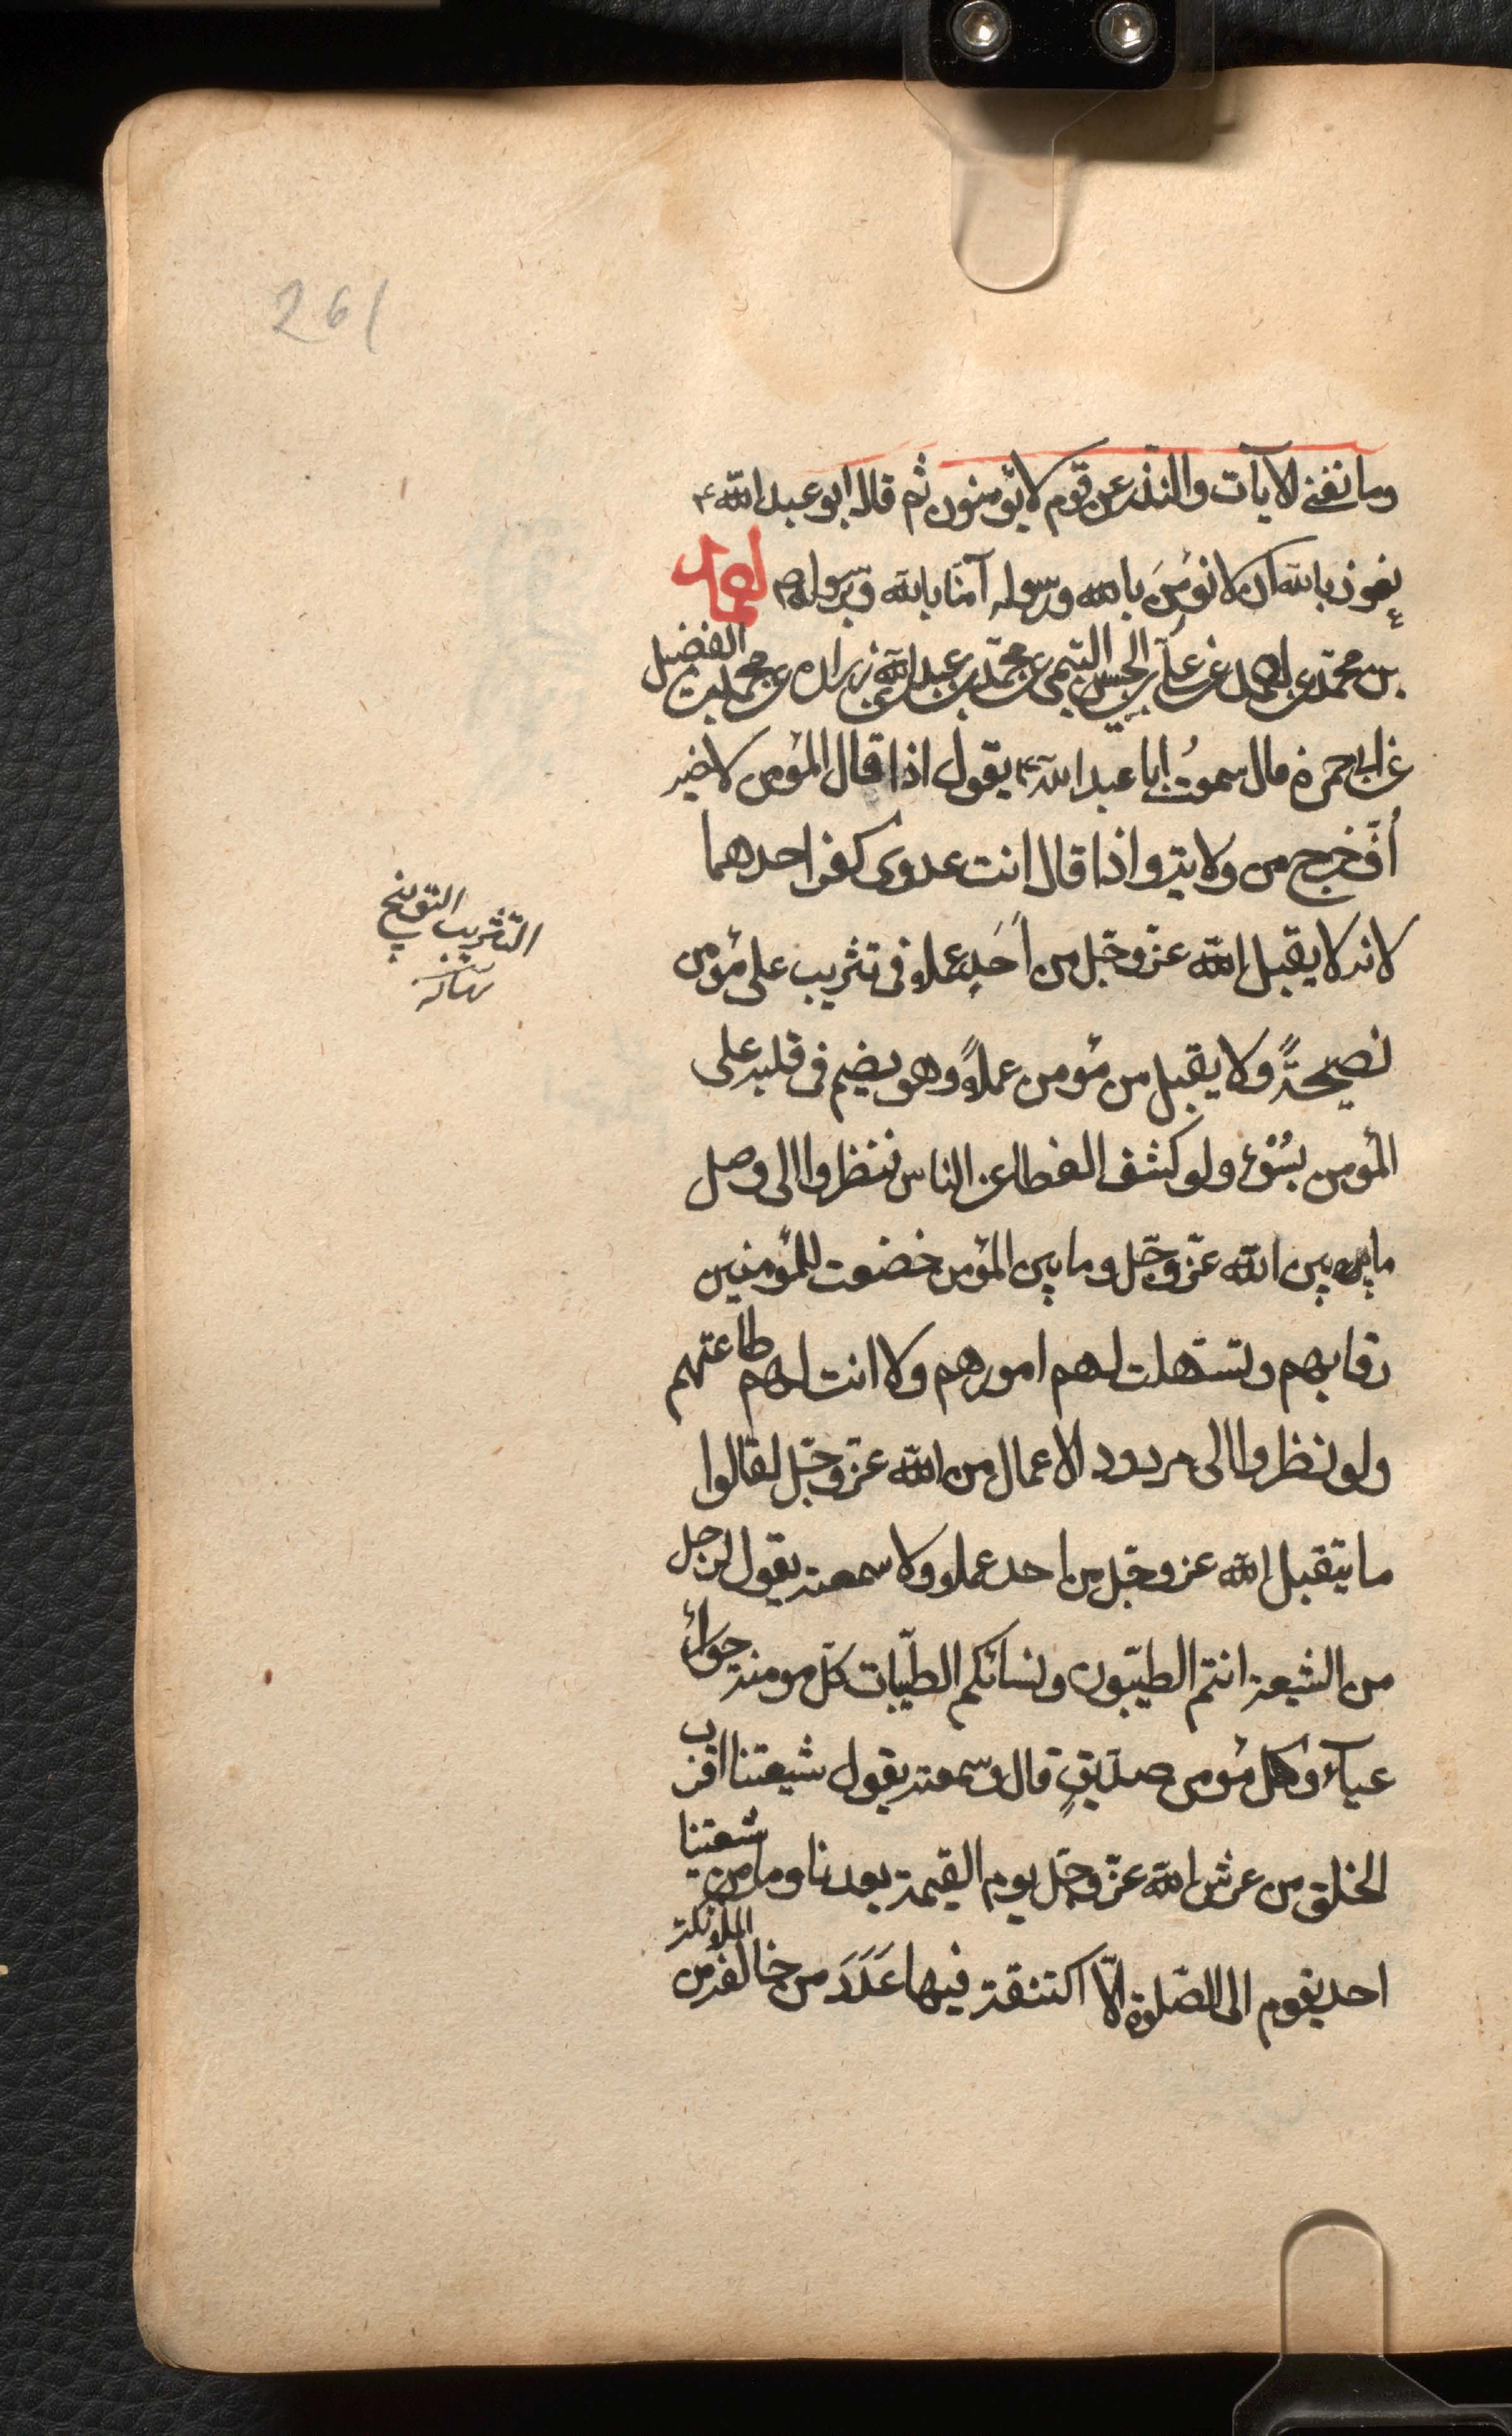 261
وما تغنى الايآت والنّذر عن قوم لا يؤمنون ثم قال ابو عبد اللّه ع
نعوذ بالله ان لا نؤمنَ بالله ورسوله آمنّا بالله وبرسوله ص احمد
بن محمّد بن احمد عن علىّ بن الحسن التيمى عن محمّد بن عبد اللّه عن زراره عن محمد بن الفضيل
عن ابى حمزة قال سمعتُ ابا عبد اللّه ع يقول اذا قال المؤمن لاخيه
اُفّ خرج من ولايته واذا قال انت عدوى كفر احدهما
لانه لا يقبل اللّه عزّ وجّل من اَحَدٍ عملا فى تثريب على مؤمن
التّثريب التوبيخ
نصيحةً ولا يقبل من مؤمن عملاً وهو يضم فى قلبه على
المؤمن سُوْء ولو كشف الغطا عن الناس فنظروا الى وصل
ما بين اللّه عزّ وجّل وما بين المؤمن خضعت للمؤمنين
رقابهم وتسّهلت لهم امورهم ولانت لهم طاعتهم
ولو نظروا الى مردود الاعمال من اللّه عزّ وجّل لقالوا
ما يتقبل اللّه عز وجّل من احد عملا وسمعته يقول لرجل
من الشيعة انتم الطيّبون ونسائكم الطيّبات كلّ مومنة حورآء
عيآء وكل مؤمن صدّيق قال وسمعته يقول شيعتنا اقرب
الخلق من عرش اللّه عزّ وجّل يوم القيمة بعدنا وما من شيعتنا
احد يقوم الى الصّلوة الاّ اكتنفته فيها عَدَدَ من خالفه من الملائكة